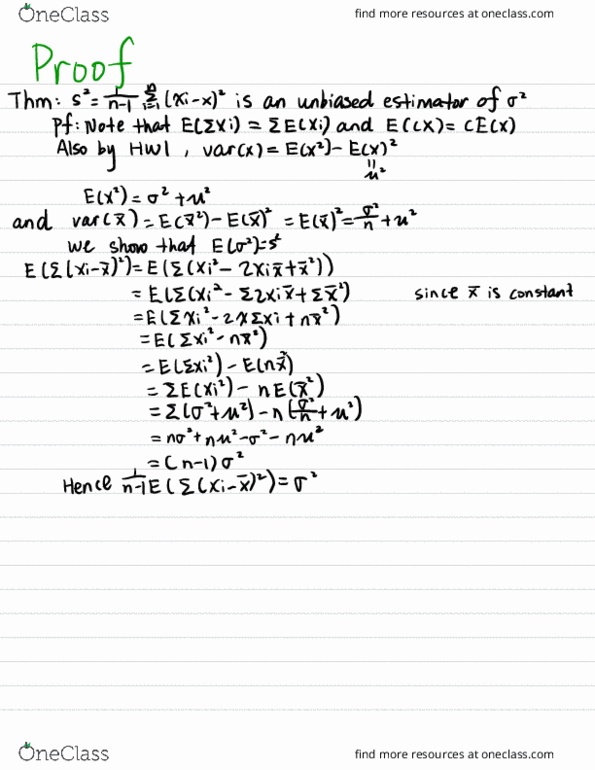 OneClass find more resources at oneclass.com
Proof
Thm: s² = 1/n-1 n Σ i=1 (xi-x)² is an unbiased estimator of σ²
Pf: Note that E(Σxi) = ΣE(xi) and E(cx) = cE(x)
Also by HW1, var(x) = E(x²) - E(x)²
||
μ²
E(x²) = σ² + μ²
and var(x̄) = E(x̄²) - E(x̄)² = E(x̄)² = σ²/n + μ²
we show that E(σ²)=s²
E(Σ(xi-x̄)²) = E(Σ(xi² - 2xix̄ + x̄²))
= E(Σ(xi² - Σ2xix̄ + Σx̄²) since x̄ is constant
= E(Σxi² - 2xΣxi + nx̄²)
= E(Σxi² - nx̄²)
= E(Σxi²) - E(nx̄²)
= ΣE(xi²) - nE(x̄²)
= Σ(σ²+μ²) - n(σ²/n + μ²)
= nσ² + nμ² - σ² - nμ²
= (n-1)σ²
Hence 1/n-1 E(Σ(xi-x̄)²) = σ²
OneClass find more resources at oneclass.com